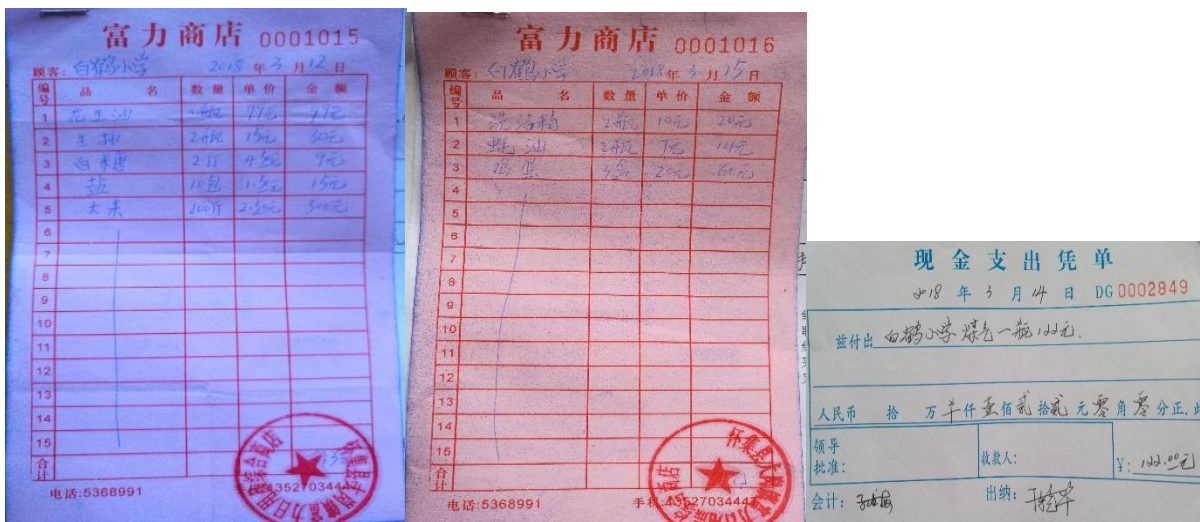 富力商店 0001015
顾客: 白鹤小学 2018年3月12日
编号 品名 数量 单价 金额
1 花生油 1瓶 99元 99元
2 生抽 2瓶 15元 30元
3 白糖 2斤 9元
4 盐 10包 15元
5 大米 200斤 500元
6
7
8
9
10
11
12
13
14
15
合计
电话:5368991 13527034447
富力商店 0001016
顾客: 白鹤小学 2018年3月15日
编号 品名 数量 单价 金额
1 洗洁精 2瓶 10元 20元
2 蚝油 2瓶 7元 14元
3 20元 60元
4
5
6
7
8
9
10
11
12
13
14
15
合计
电话:5368991 手机:13527034447
现金支出凭单
2018年3月14日 DG 0002849
兹付出 白鹤小学煤气一瓶122元.
人民币 拾 万 仟壹佰贰拾贰元零角零分正.
领导批准: 收款人: ¥: 122.00元
会计: 出纳: